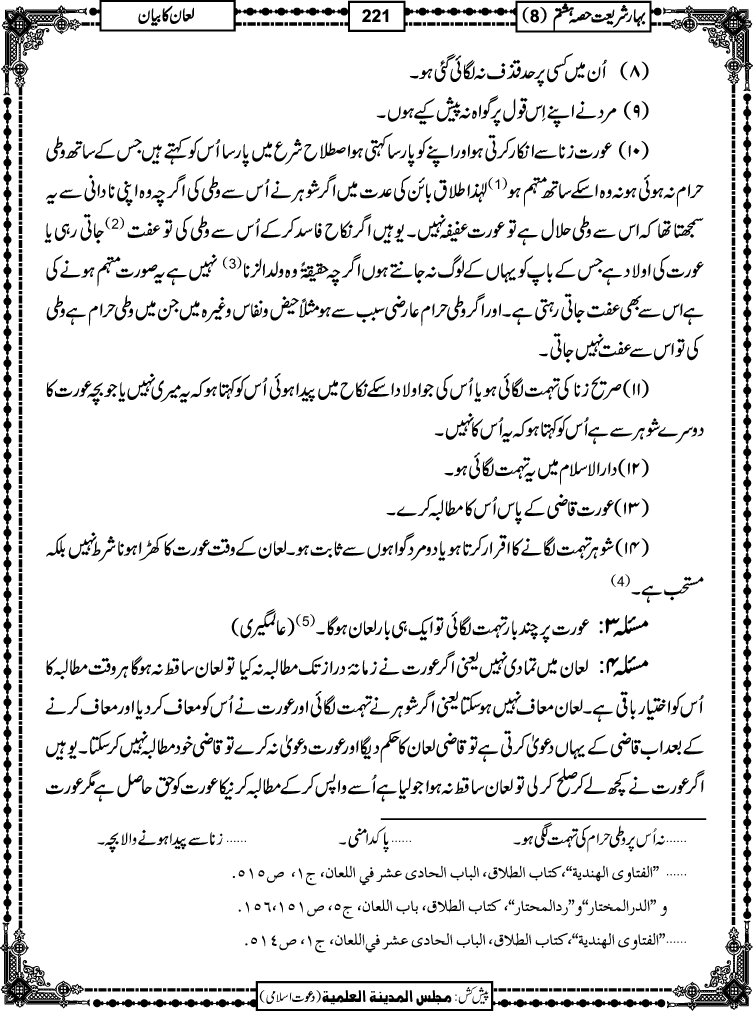 بہار شریعت حصہ ہشتم (8)
221
لعان کا بیان
(۸) اُن میں کسی پر حد قذف نہ لگائی گئی ہو۔
(۹) مرد نے اپنے اِس قول پر گواہ نہ پیش کیے ہوں۔
(۱۰) عورت زنا سے انکار کرتی ہو اور اپنے کو پارسا کہتی ہو اصطلاح شرع میں پارسا اُس کو کہتے ہیں جس کے ساتھ وطی
حرام نہ ہوئی ہو نہ وہ اسکے ساتھ متہم ہو(1) لہٰذا طلاق بائن کی عدت میں اگر شوہر نے اُس سے وطی کی اگرچہ وہ اپنی نادانی سے یہ
سمجھتا تھا کہ اس سے وطی حلال ہے تو عورت عفیفہ نہیں۔ یوہیں اگر نکاح فاسد کرکے اُس سے وطی کی تو عفت(2) جاتی رہی یا
عورت کی اولاد ہے جس کے باپ کو یہاں کے لوگ نہ جانتے ہوں اگرچہ حقیقۃً وہ ولد الزنا(3) نہیں ہے یہ صورت متہم ہونے کی
ہے اس سے بھی عفت جاتی رہتی ہے۔ اور اگر وطی حرام عارضی سبب سے ہو مثلاً حیض و نفاس وغیرہ میں جن میں وطی حرام ہے وطی
کی تو اس سے عفت نہیں جاتی۔
(۱۱) صریح زنا کی تہمت لگائی ہو یا اُس کی جو اولاد اسکے نکاح میں پیدا ہوئی اُس کو کہتا ہو کہ یہ میری نہیں یا جو بچہ عورت کا
دوسرے شوہر سے ہے اُس کو کہتا ہو کہ یہ اُس کا نہیں۔
(۱۲) دار الاسلام میں یہ تہمت لگائی ہو۔
(۱۳) عورت قاضی کے پاس اُس کا مطالبہ کرے۔
(۱۴) شوہر تہمت لگانے کا اقرار کرتا ہو یا دو مرد گواہوں سے ثابت ہو۔ لعان کے وقت عورت کا کھڑا ہونا شرط نہیں بلکہ
مستحب ہے۔(4)
مسئلہ ۳: عورت پر چند بار تہمت لگائی تو ایک ہی بار لعان ہوگا۔(5) (عالمگیری)
مسئلہ ۴: لعان میں تمادی نہیں یعنی اگر عورت نے زمانۂ دراز تک مطالبہ نہ کیا تو لعان ساقط نہ ہوگا ہر وقت مطالبہ کا
اُس کو اختیار باقی ہے۔ لعان معاف نہیں ہوسکتا یعنی اگر شوہر نے تہمت لگائی اور عورت نے اُس کو معاف کر دیا اور معاف کرنے
کے بعد اب قاضی کے یہاں دعویٰ کرتی ہے تو قاضی لعان کا حکم دیگا اور عورت دعویٰ نہ کرے تو قاضی خود مطالبہ نہیں کرسکتا۔ یوہیں
اگر عورت نے کچھ لے کر صلح کر لی تو لعان ساقط نہ ہوا جو لیا ہے اُسے واپس کرکے مطالبہ کرنیکا عورت کو حق حاصل ہے مگر عورت
......نہ اُس پر وطی حرام کی تہمت لگی ہو۔ ......پاکدامنی۔ ......زنا سے پیدا ہونے والا بچہ۔
......"الفتاوی الهندية"، كتاب الطلاق، الباب الحادی عشر في اللعان، ج۱، ص۵۱۵.
و "الدرالمختار" و"ردالمحتار"، كتاب الطلاق، باب اللعان، ج۵، ص۱۵۱،۱۵۶.
......"الفتاوی الهندية"، كتاب الطلاق، الباب الحادی عشر في اللعان، ج۱، ص۵۱۴.
پیش کش: مجلس المدینۃ العلمیۃ (دعوت اسلامی)